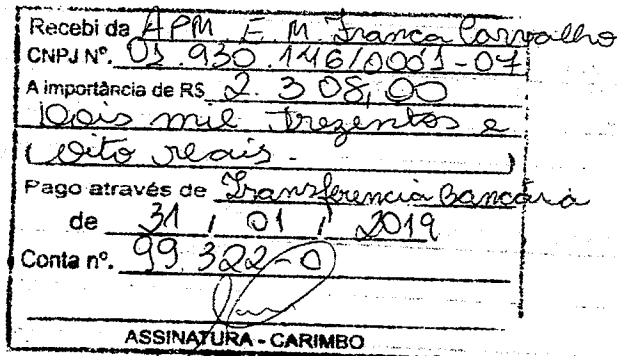 Recebi da APM E. M. Franca Carvalho
CNPJ Nº. 01.930.146/0001-07
A importância de R$ 2.308,00
(Dois mil trezentos e
oito reais.)
Pago através de Transferencia Bancária
de 31 / 01 / 2019
Conta nº. 99.322-0
ASSINATURA - CARIMBO